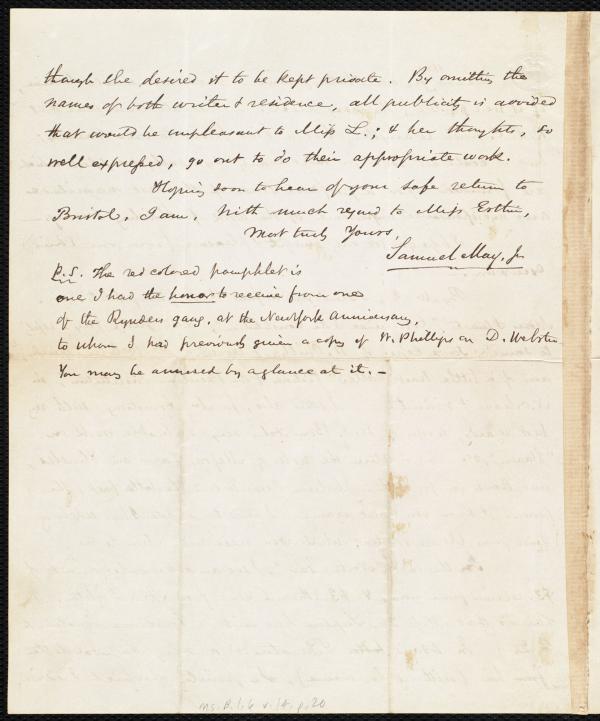 though she desired it to be kept private. By omitting the
names of both writer & residence, all publicity is avoided
that would be unpleasant to Miss L.; & her thoughts, so
well expressed, go out to do their appropriate work.
Hoping soon to hear of your safe return to
Bristol, I am, with much regard to Miss Estlin,
Most truly Yours,
Samuel May, Jr
P.S. The red colored pamphlet is
one I had the honor to receive from one
of the Rynders gang, at the New York Anniversary,
to whom I had previously given a copy of W. Phillips on D. Webster
You may be amused by a glance at it. –
Ms. B.1.6 v.14, p.20